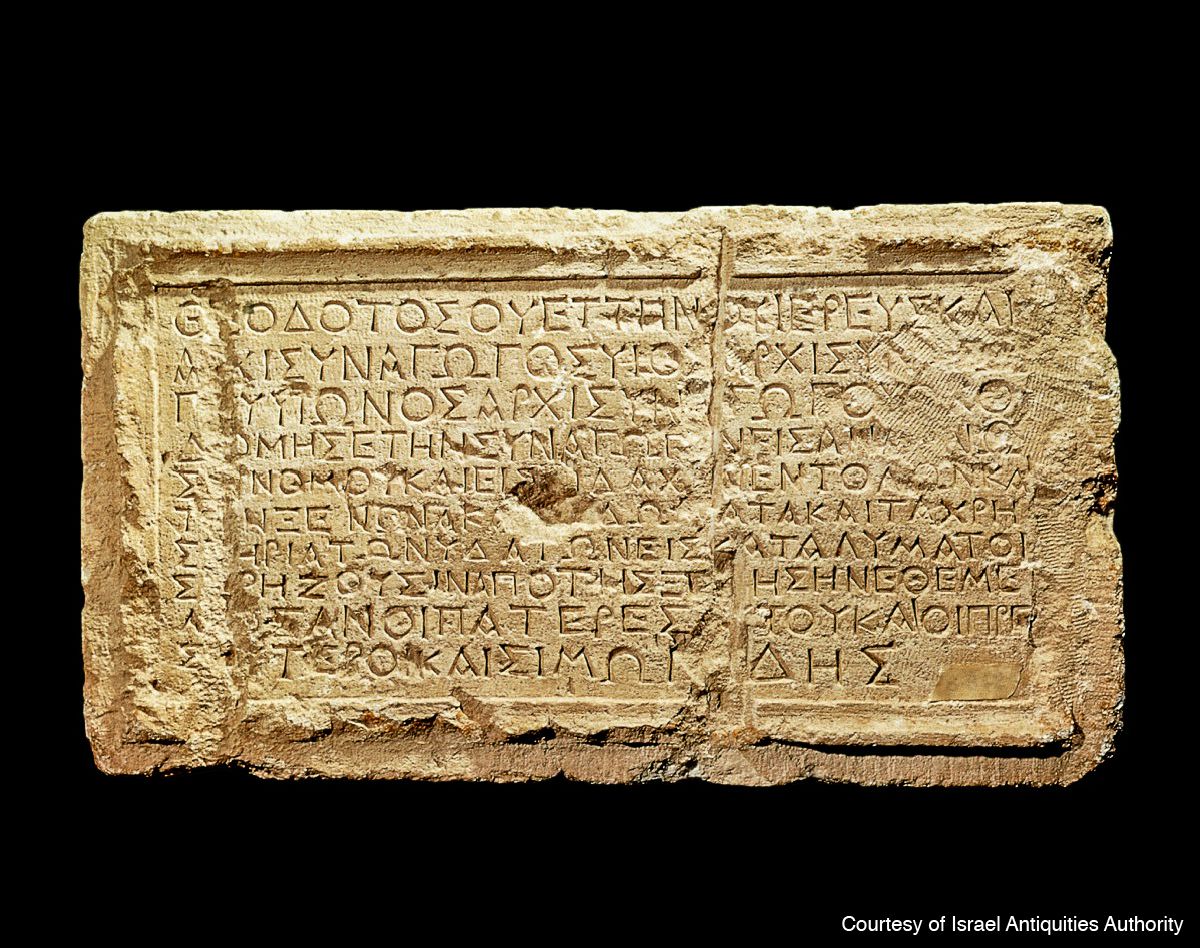 ΘΕΟΔΟΤΟΣ ΟΥΕΤΤΗΝΟΥ ΙΕΡΕΥΣ ΚΑΙ
ΑΡΧΙΣΥΝΑΓΩΓΟΣ ΥΙΟΣ ΑΡΧΙΣΥ
ΥΙΩΝΟΣ ΑΡΧΙΣΥΝ ΓΩΓΟΥ ΚΟ
ΔΟΜΗΣΕ ΤΗΝ ΣΥΝΑΓΩΓ Ν ΕΙΣ ΑΝ ΝΩ
Σ Ν ΝΟΜΟΥ ΚΑΙ ΕΙΣ ΔΙΔΑΧΗΝ ΕΝΤΟΛΩΝ ΚΑΙ
ΤΟΝ ΞΕΝΩΝΑ ΚΑ ΔΩΜΑΤΑ ΚΑΙ ΤΑ ΧΡΗ
Σ ΗΡΙΑ ΤΩΝ ΥΔΑΤΩΝ ΕΙΣ ΚΑΤΑΛΥΜΑ ΤΟΙ
Σ ΡΗΖΟΥΣΙΝ ΑΠΟ ΤΗΣ ΞΕ ΗΣ ΗΝ ΕΘΕΜΕ
Λ ΣΑΝ ΟΙ ΠΑΤΕΡΕΣ ΤΟΥ ΚΑΙ ΟΙ ΠΡΕ
Σ ΤΕΡΟΙ ΚΑΙ ΣΙΜΩΝ ΔΗΣ
Courtesy of Israel Antiquities Authority